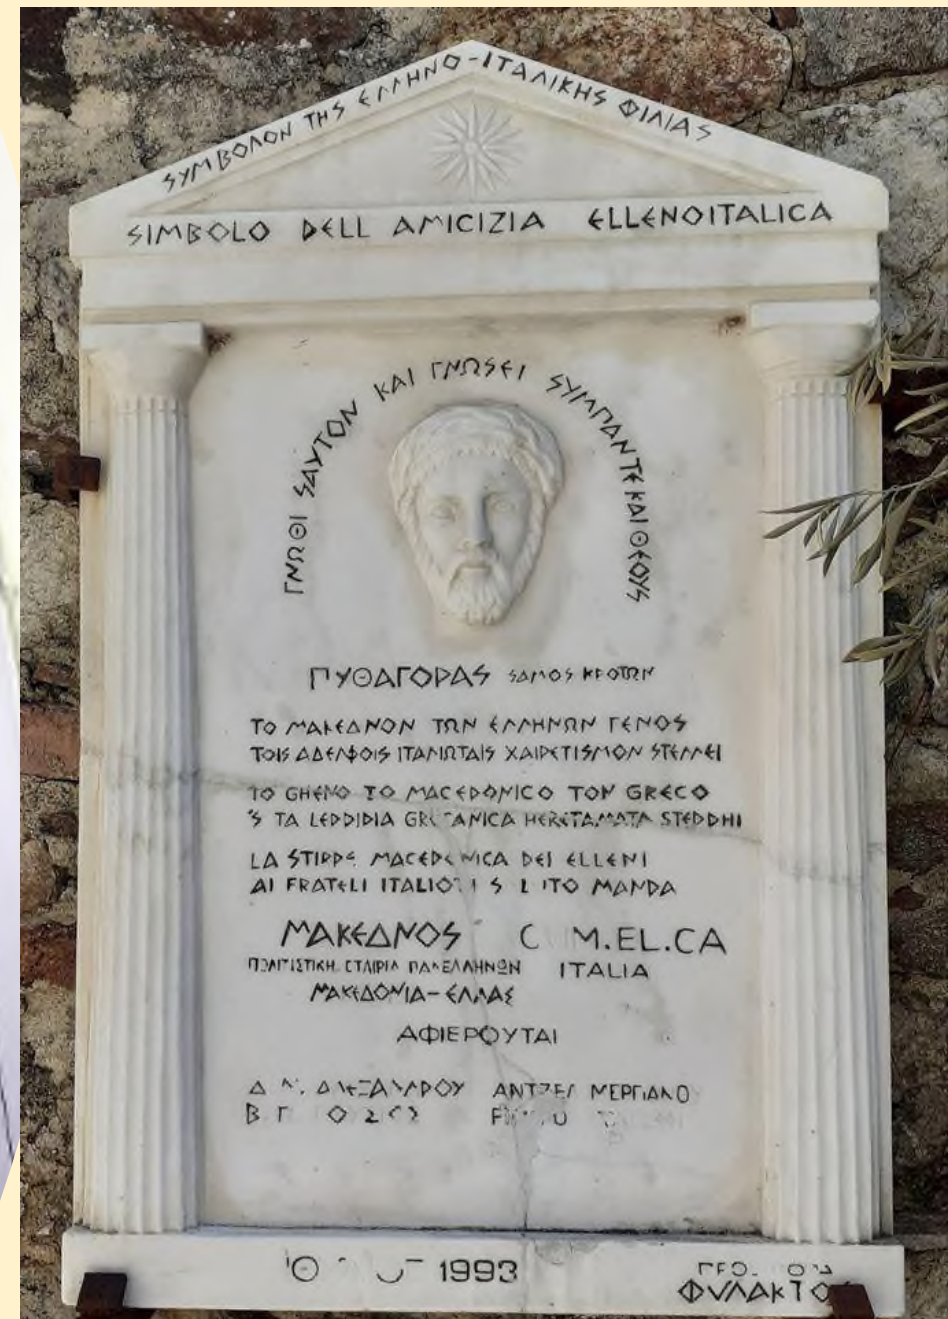 ΣΥΜΒΟΛΟΝ ΤΗΣ ΕΛΛΗΝΟ-ΙΤΑΛΙΚΗΣ ΦΙΛΙΑΣ
SIMBOLO DELL AMICIZIA ELLENOITALICA
ΓΝΩΘΙ ΣΑΥΤΟΝ ΚΑΙ ΓΝΩΣΕΙ ΣΥΜΠΑΝ ΤΕ ΚΑΙ ΘΕΟΥΣ
ΠΥΘΑΓΟΡΑΣ ΣΑΜΟΣ ΚΡΟΤΩΝ
ΤΟ ΜΑΚΕΔΝΟΝ ΤΩΝ ΕΛΛΗΝΩΝ ΓΕΝΟΣ
ΤΟΙΣ ΑΔΕΛΦΟΙΣ ΙΤΑΛΙΩΤΑΙΣ ΧΑΙΡΕΤΙΣΜΟΝ ΣΤΕΛΛΕΙ
TO GHENO TO MACEDONICO TON GRECO
'S TA LEDDIDIA GRECANICA HERETAMATA STEDDHI
LA STIRPE MACEDENICA DEI ELLENI
AI FRATELI MANDA
ΜΑΚΕΔΝΟΣ M.EL.CA
ΠΟΛΙΤΙΣΤΙΚΗ ΕΤΑΙΡΙΑ ΠΑΝΕΛΛΗΝΩΝ ITALIA
ΜΑΚΕΔΟΝΙΑ-ΕΛΛΑΣ
ΑΦΙΕΡΟΥΤΑΙ
ΑΛΕΞΑΝΔΡΟΥ ΑΝΤΖΕΛ ΜΕΡΓΙΑΝΟ
1993
ΦΥΛΑΚΤΟΥ